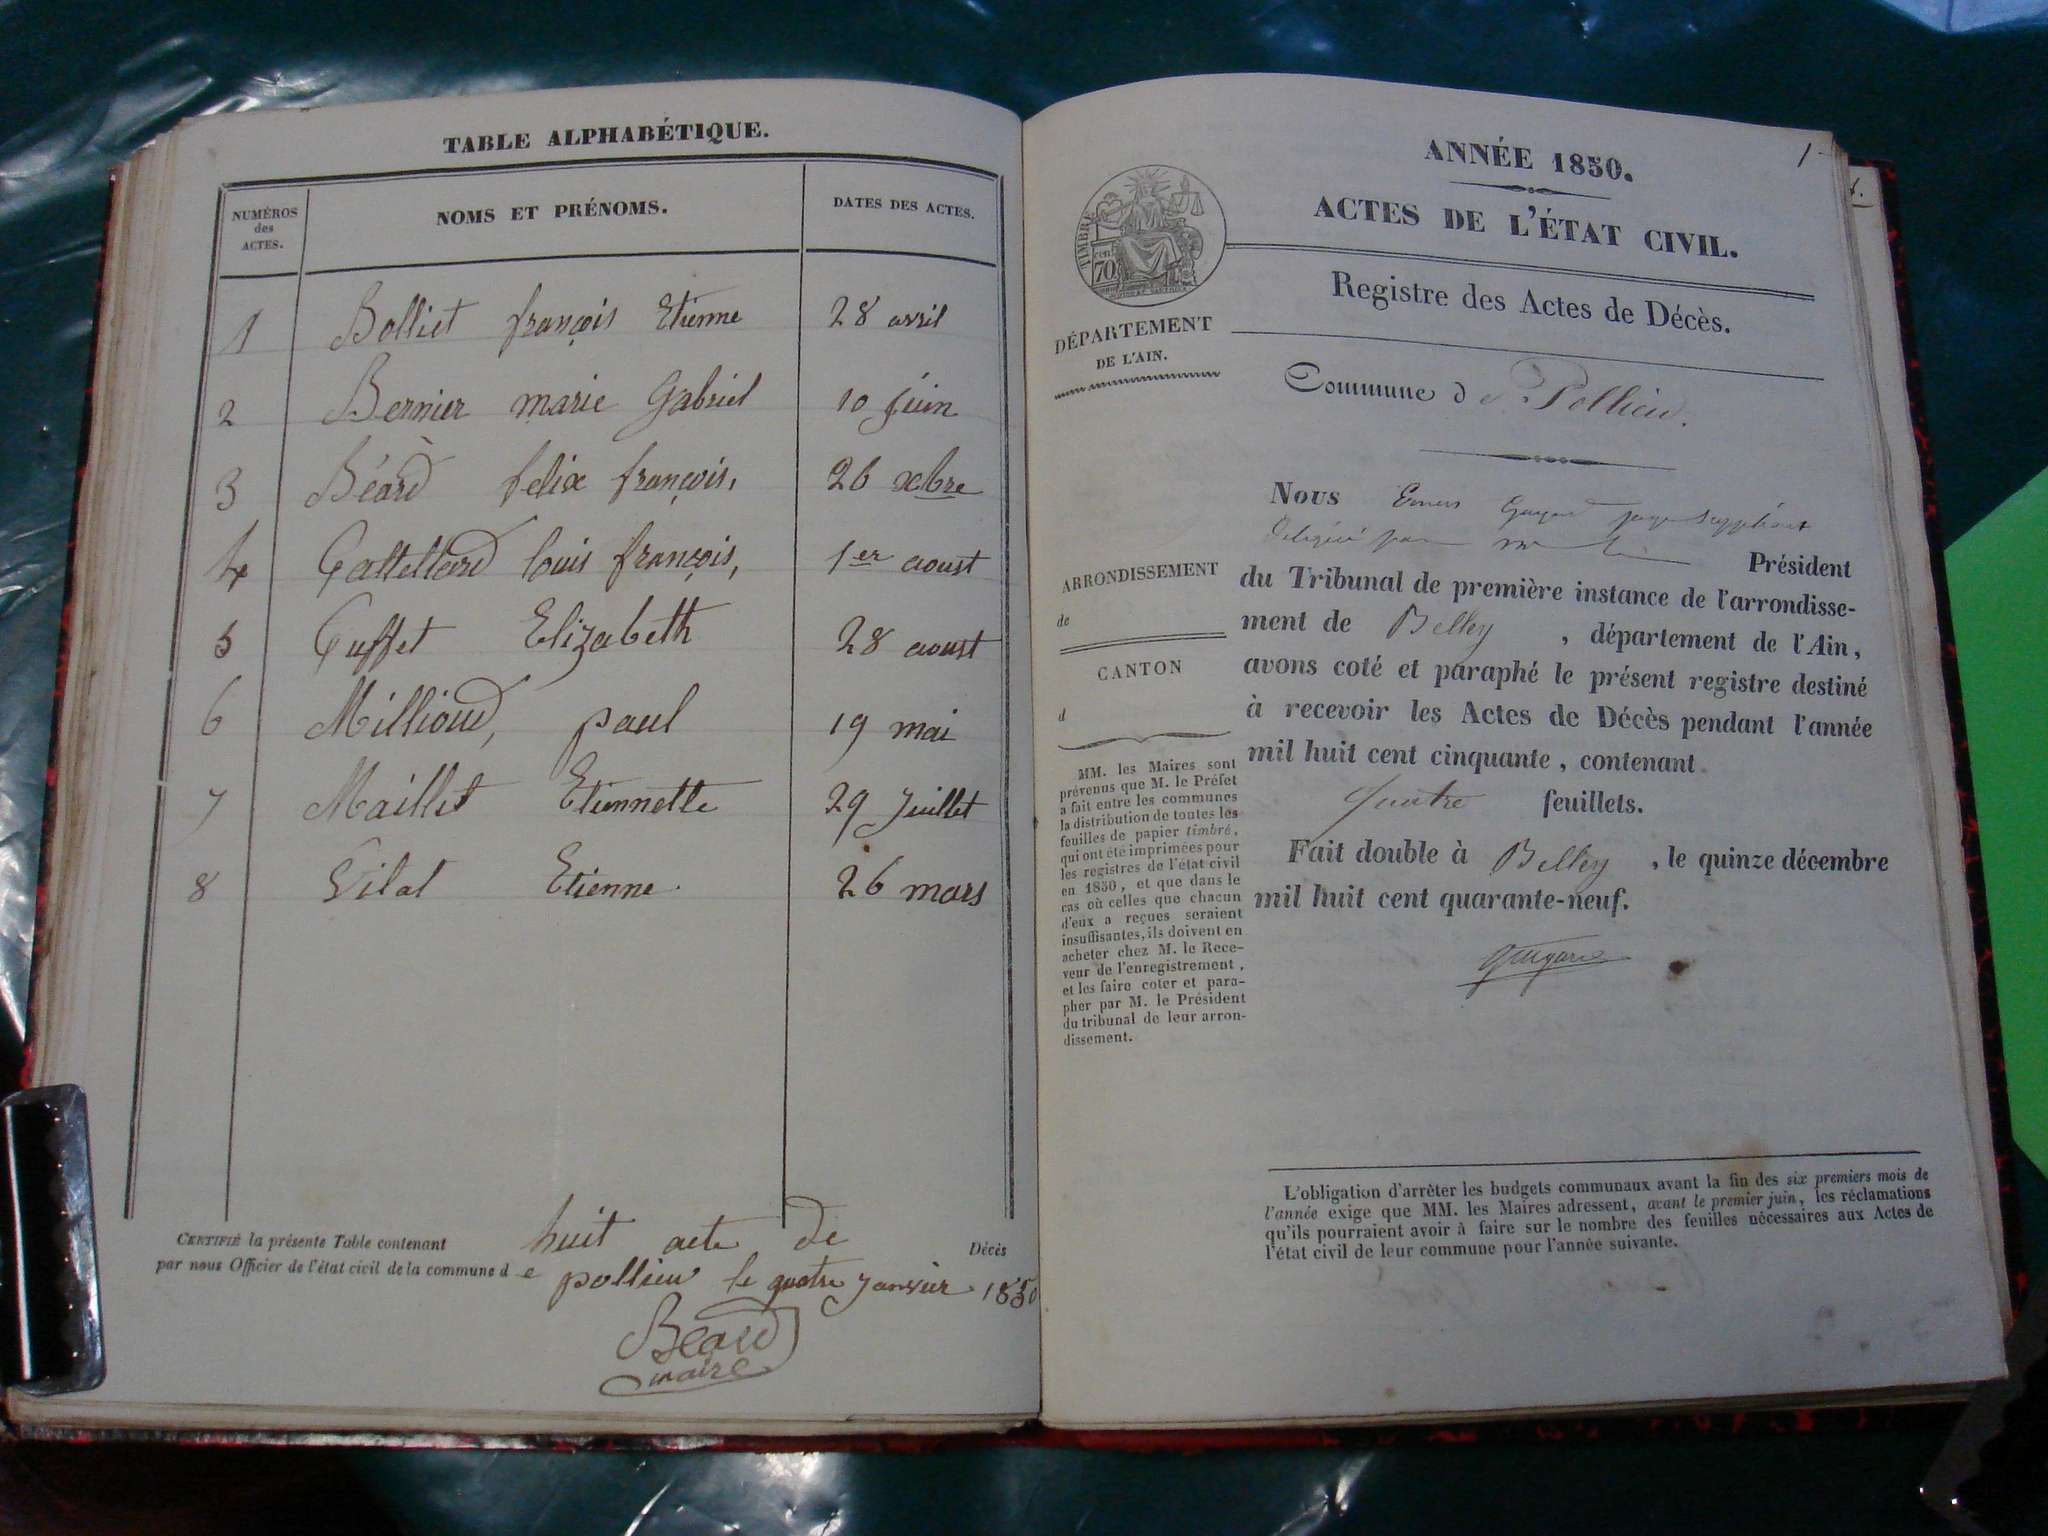 TABLE ALPHABÉTIQUE.
NUMÉROS des ACTES. NOMS ET PRÉNOMS. DATES DES ACTES.
1 Bolliet françois Etienne 28 avril
2 Bernier marie Gabriel 10 juin
3 Béard felix françois, 26 xbre
4 Gallettard louis françois, 1er aoust
5 Guffet Elizabeth 28 aoust
6 Milliand, paul 19 mai
7 Maillet Etiennette 29 Juillet
8 Vilat Etienne 26 mars
CERTIFIÉ la présente Table contenant huit acte de Décès
par nous Officier de l'état civil de la commune de pollieu le quatre janvier 1850
Béard
maire
1
ANNÉE 1850.
ACTES DE L'ÉTAT CIVIL.
Registre des Actes de Décès.
TIMBRE
cen.
70
DÉPARTEMENT
DE L'AIN.
Commune d Pollieu.
ARRONDISSEMENT
de
CANTON
d
MM. les Maires sont
prévenus que M. le Préfet
a fait entre les communes
la distribution de toutes les
feuilles de papier timbré,
qui ont été imprimées pour
les registres de l'état civil
en 1850, et que dans le
cas où celles que chacun
d'eux a reçues seraient
insuffisantes, ils doivent en
acheter chez M. le Rece-
veur de l'enregistrement,
et les faire coter et para-
pher par M. le Président
du tribunal de leur arron-
dissement.
Nous juge suppléant
délégué par mr Président
du Tribunal de première instance de l'arrondisse-
ment de Belley, département de l'Ain,
avons coté et paraphé le présent registre destiné
à recevoir les Actes de Décès pendant l'année
mil huit cent cinquante, contenant
quatre feuillets.
Fait double à Belley, le quinze décembre
mil huit cent quarante-neuf.
L'obligation d'arrêter les budgets communaux avant la fin des six premiers mois de
l'année exige que MM. les Maires adressent, avant le premier juin, les réclamations
qu'ils pourraient avoir à faire sur le nombre des feuilles nécessaires aux Actes de
l'état civil de leur commune pour l'année suivante.